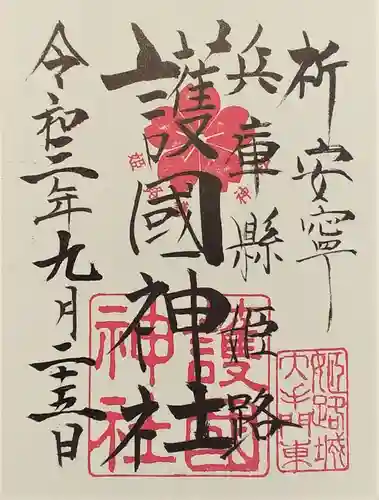 祈安寧
兵庫縣姫路
護國神社
令和二年九月二十五日
護國
神社
姫路城
大手門東